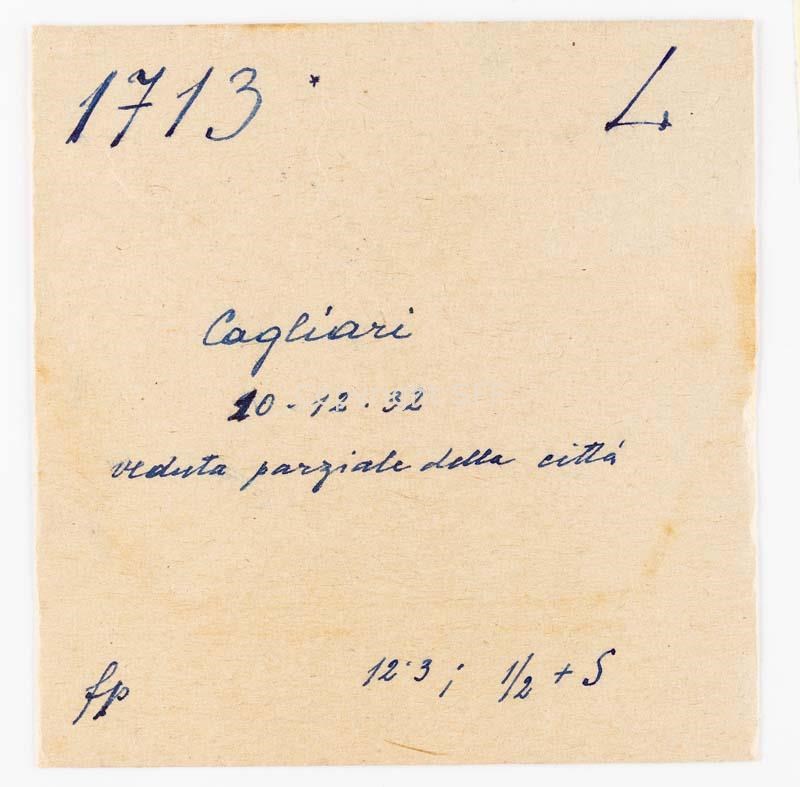 1713 * L
Cagliari
10-12.32
veduta parziale della cittá
fp 12.3; 1/2 + S